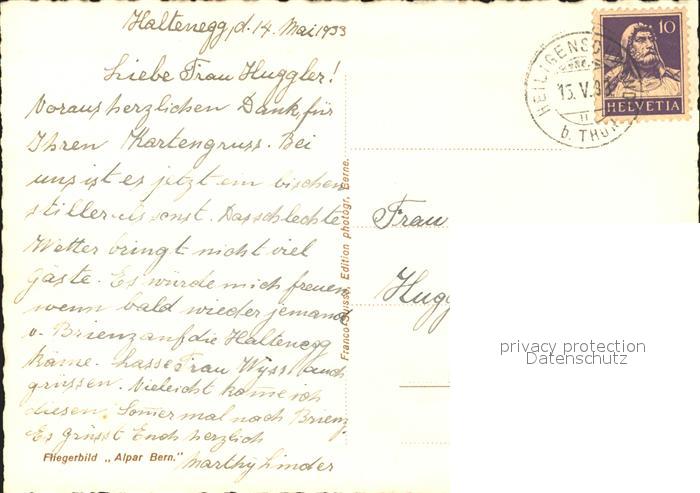 Haltenegg, d. 14. Mai 1933
Liebe Frau Huggler!
Voraus herzlichen Dank für
Ihren Kartengruss. Bei
uns ist es jetzt ein bischen
stiller als sonst. Das schlechte
Wetter bringt nicht viel
Gäste. Es würde mich freuen
wenn bald wieder jemand
v. Brienz auf die Haltenegg
käme. Lasse Frau Wyss auch
grüssen. Vieleicht kome ich
diesen Somer mal nach Brienz.
Es grüsst Euch herzlich
Marthy Linder
Fliegerbild „Alpar Bern."
Franco-Suisse, Edition photogr. Berne.
HEILIGENSCHWENDI
15. V. 33
b. THUN
10
HELVETIA
Frau
Hugg
privacy protection
Datenschutz